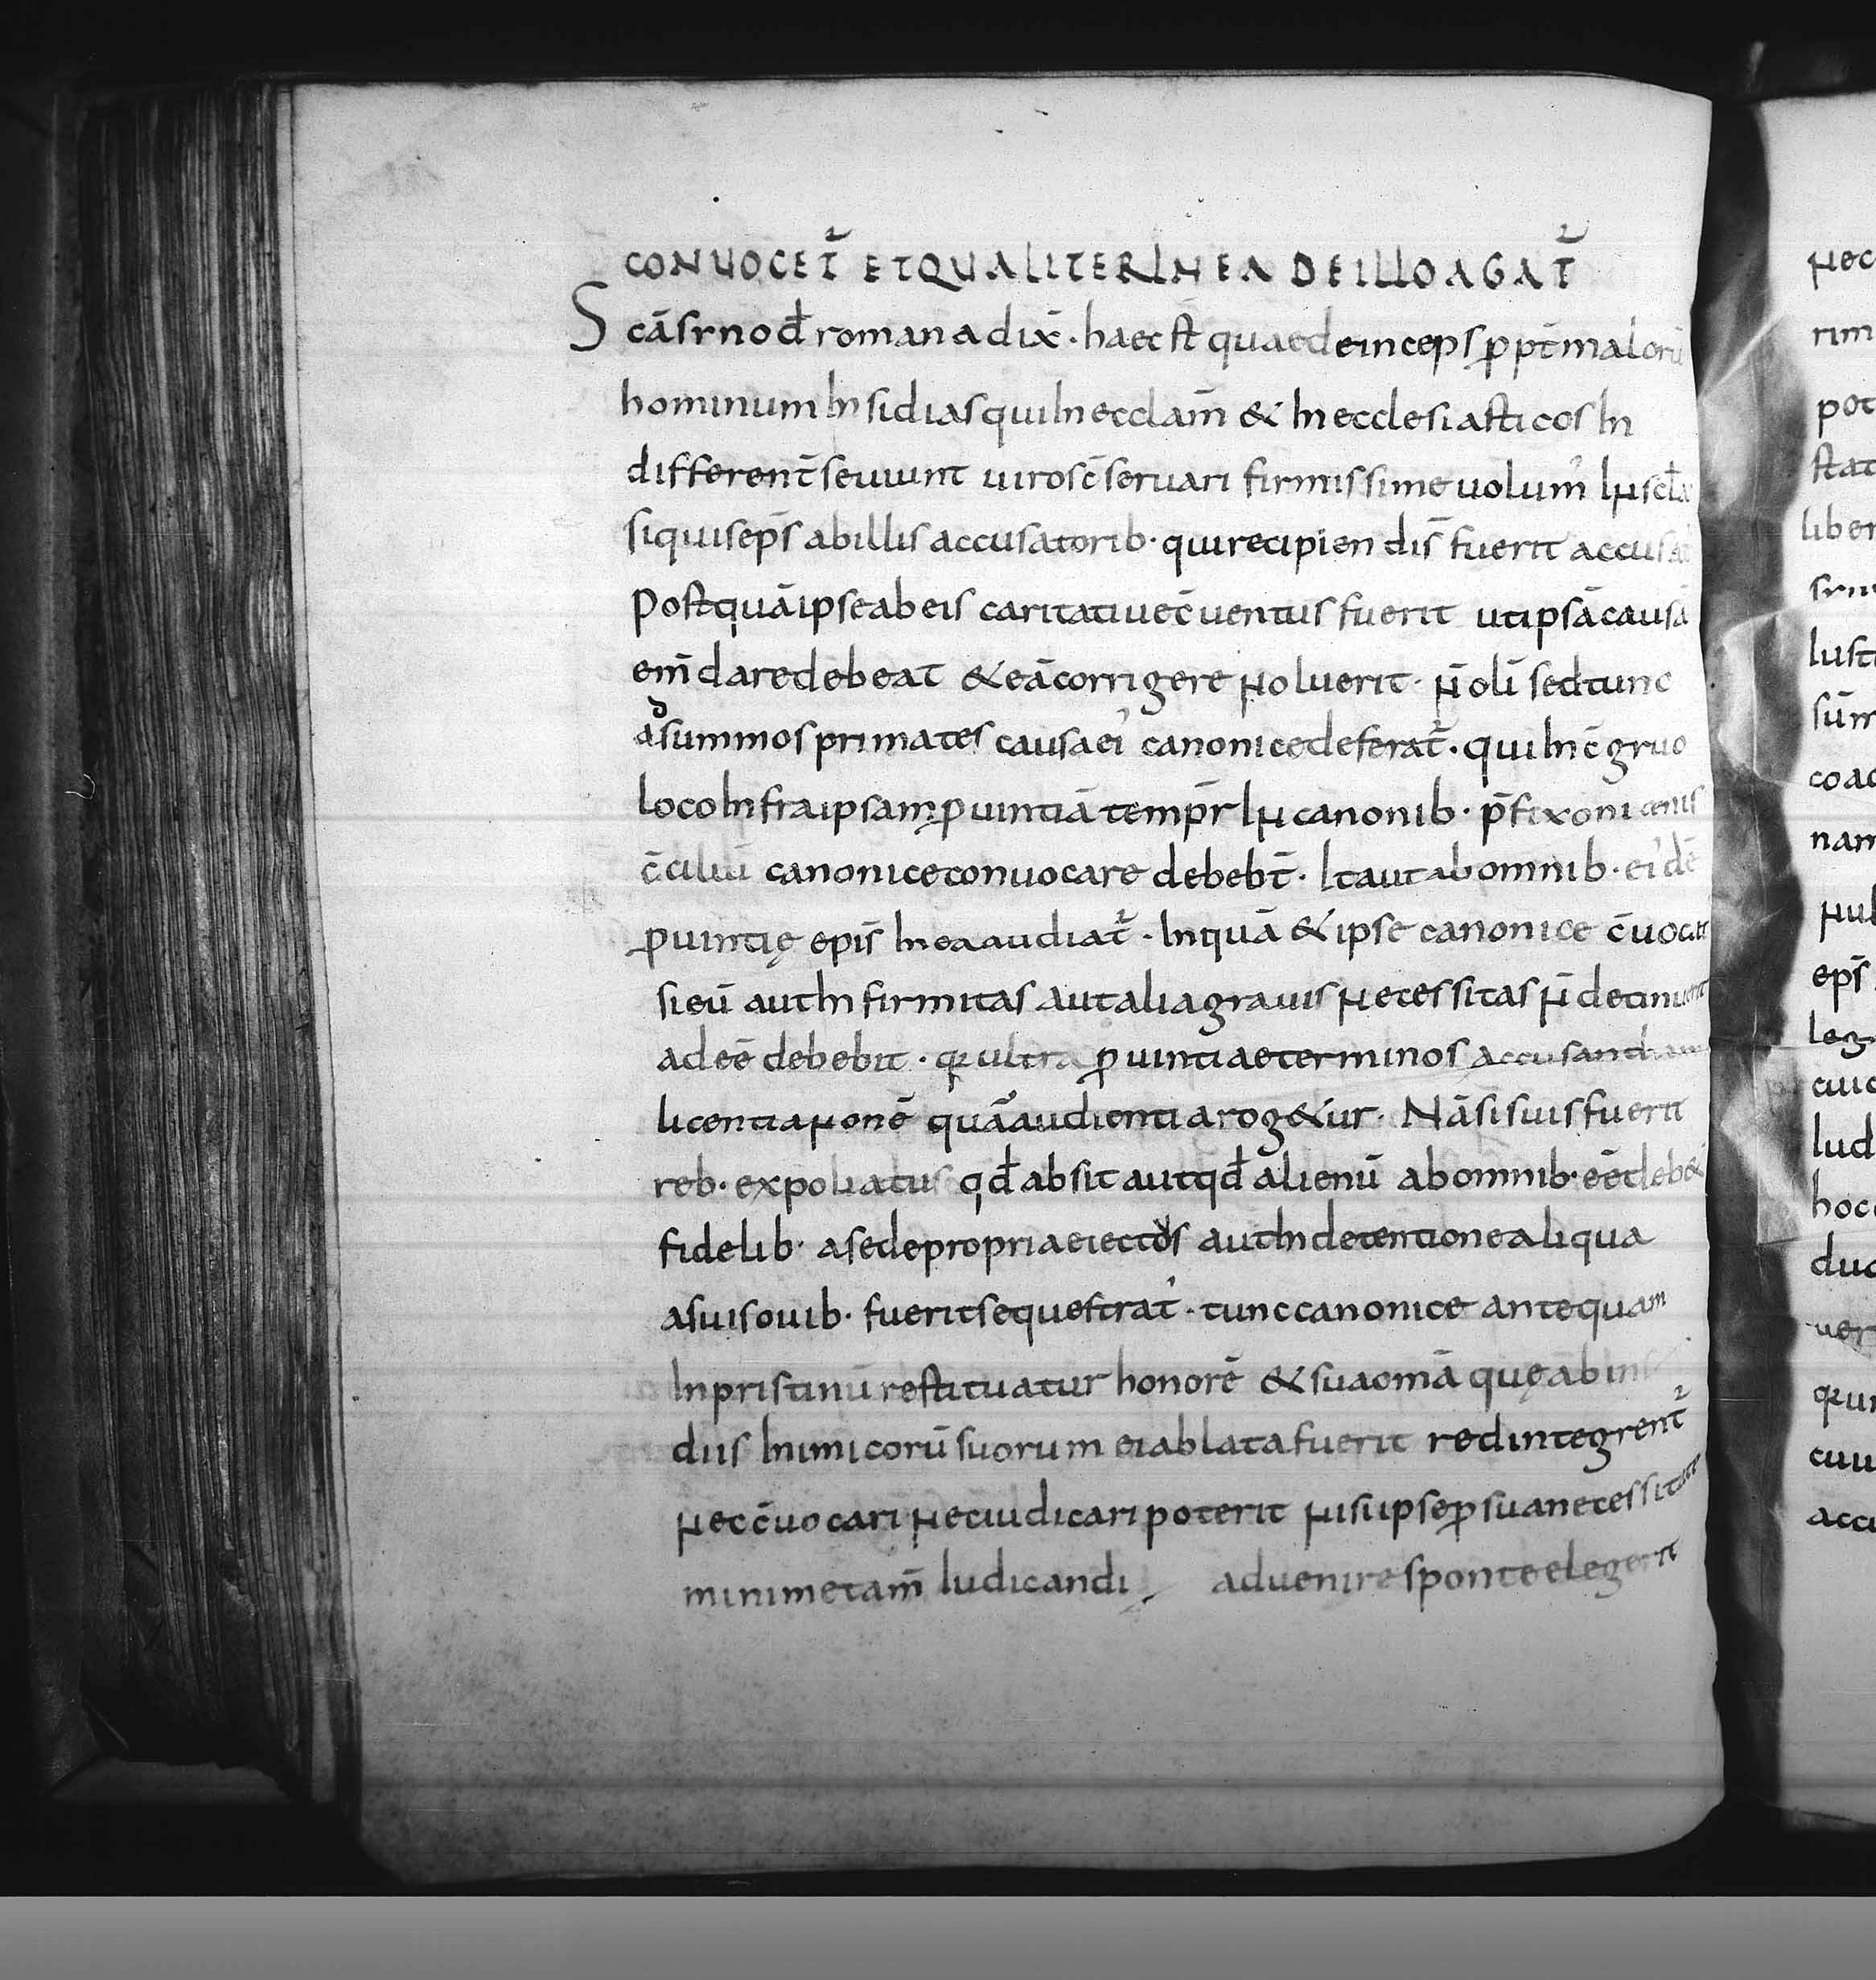 CONUOCET̄ ET QUALITER IN EA DE ILLO AGAT̄
Scā srnod̄ romana dix̄ · haec st̄ quae deinceps ꝓpt̄ malorū
hominum Insidias qui In ecclam̄ & In ecclesiasticos In
different̄ seuiunt uiros c̄seruari firmissime uolum᾽ Iħ
si quis ep̄s ab illis accusatorib· qui recipiendi s̄ fuerit
Postquā ipse ab eis caritatiue c̄uentus fuerit ut ipsā causā
em̄dare debeat & eā corrigere noluerit · n̄ oli᷎ sed tunc
ad summos primates causa ei᾽ canonice deferat̄ · qui In c̄gruo
loco Infra ipsam ꝓuintiā temp̄r In canonib· p̄fixo nicenis
c̄ciliū canonice conuocare debebt̄ · Ita ut ab omnib· ei᾽dē
ꝓuintię epis̄ In ea audiat̄ · In quā & ipse canonice c̄uocat
si eū aut Infirmitas aut alia grauis necessitas n̄ detinuerit
adeē debebit · qꝛ ultra ꝓuintiae terminos accusandi
licentia non ē quā audientia rog&ur · Nā si suis fuerit
reb· expoliatus qd̄ absit aut qd̄ alienū ab omnib· eē deb&
fidelib· a sede propria eiectus aut In detentione aliqua
a suis ouib· fuerit sequestrat᾽ · tunc canonice antequam
In pristinū restituatur honorē & sua om̄a quę ab in
diis Inimicorū suorum ei ablata fuerit redintegrent̄
nec c̄uocari nec iudicari poterit nisi ipse ꝓ sua necessitate
minime tam̄ Iudicandi aduenire sponte elegerit